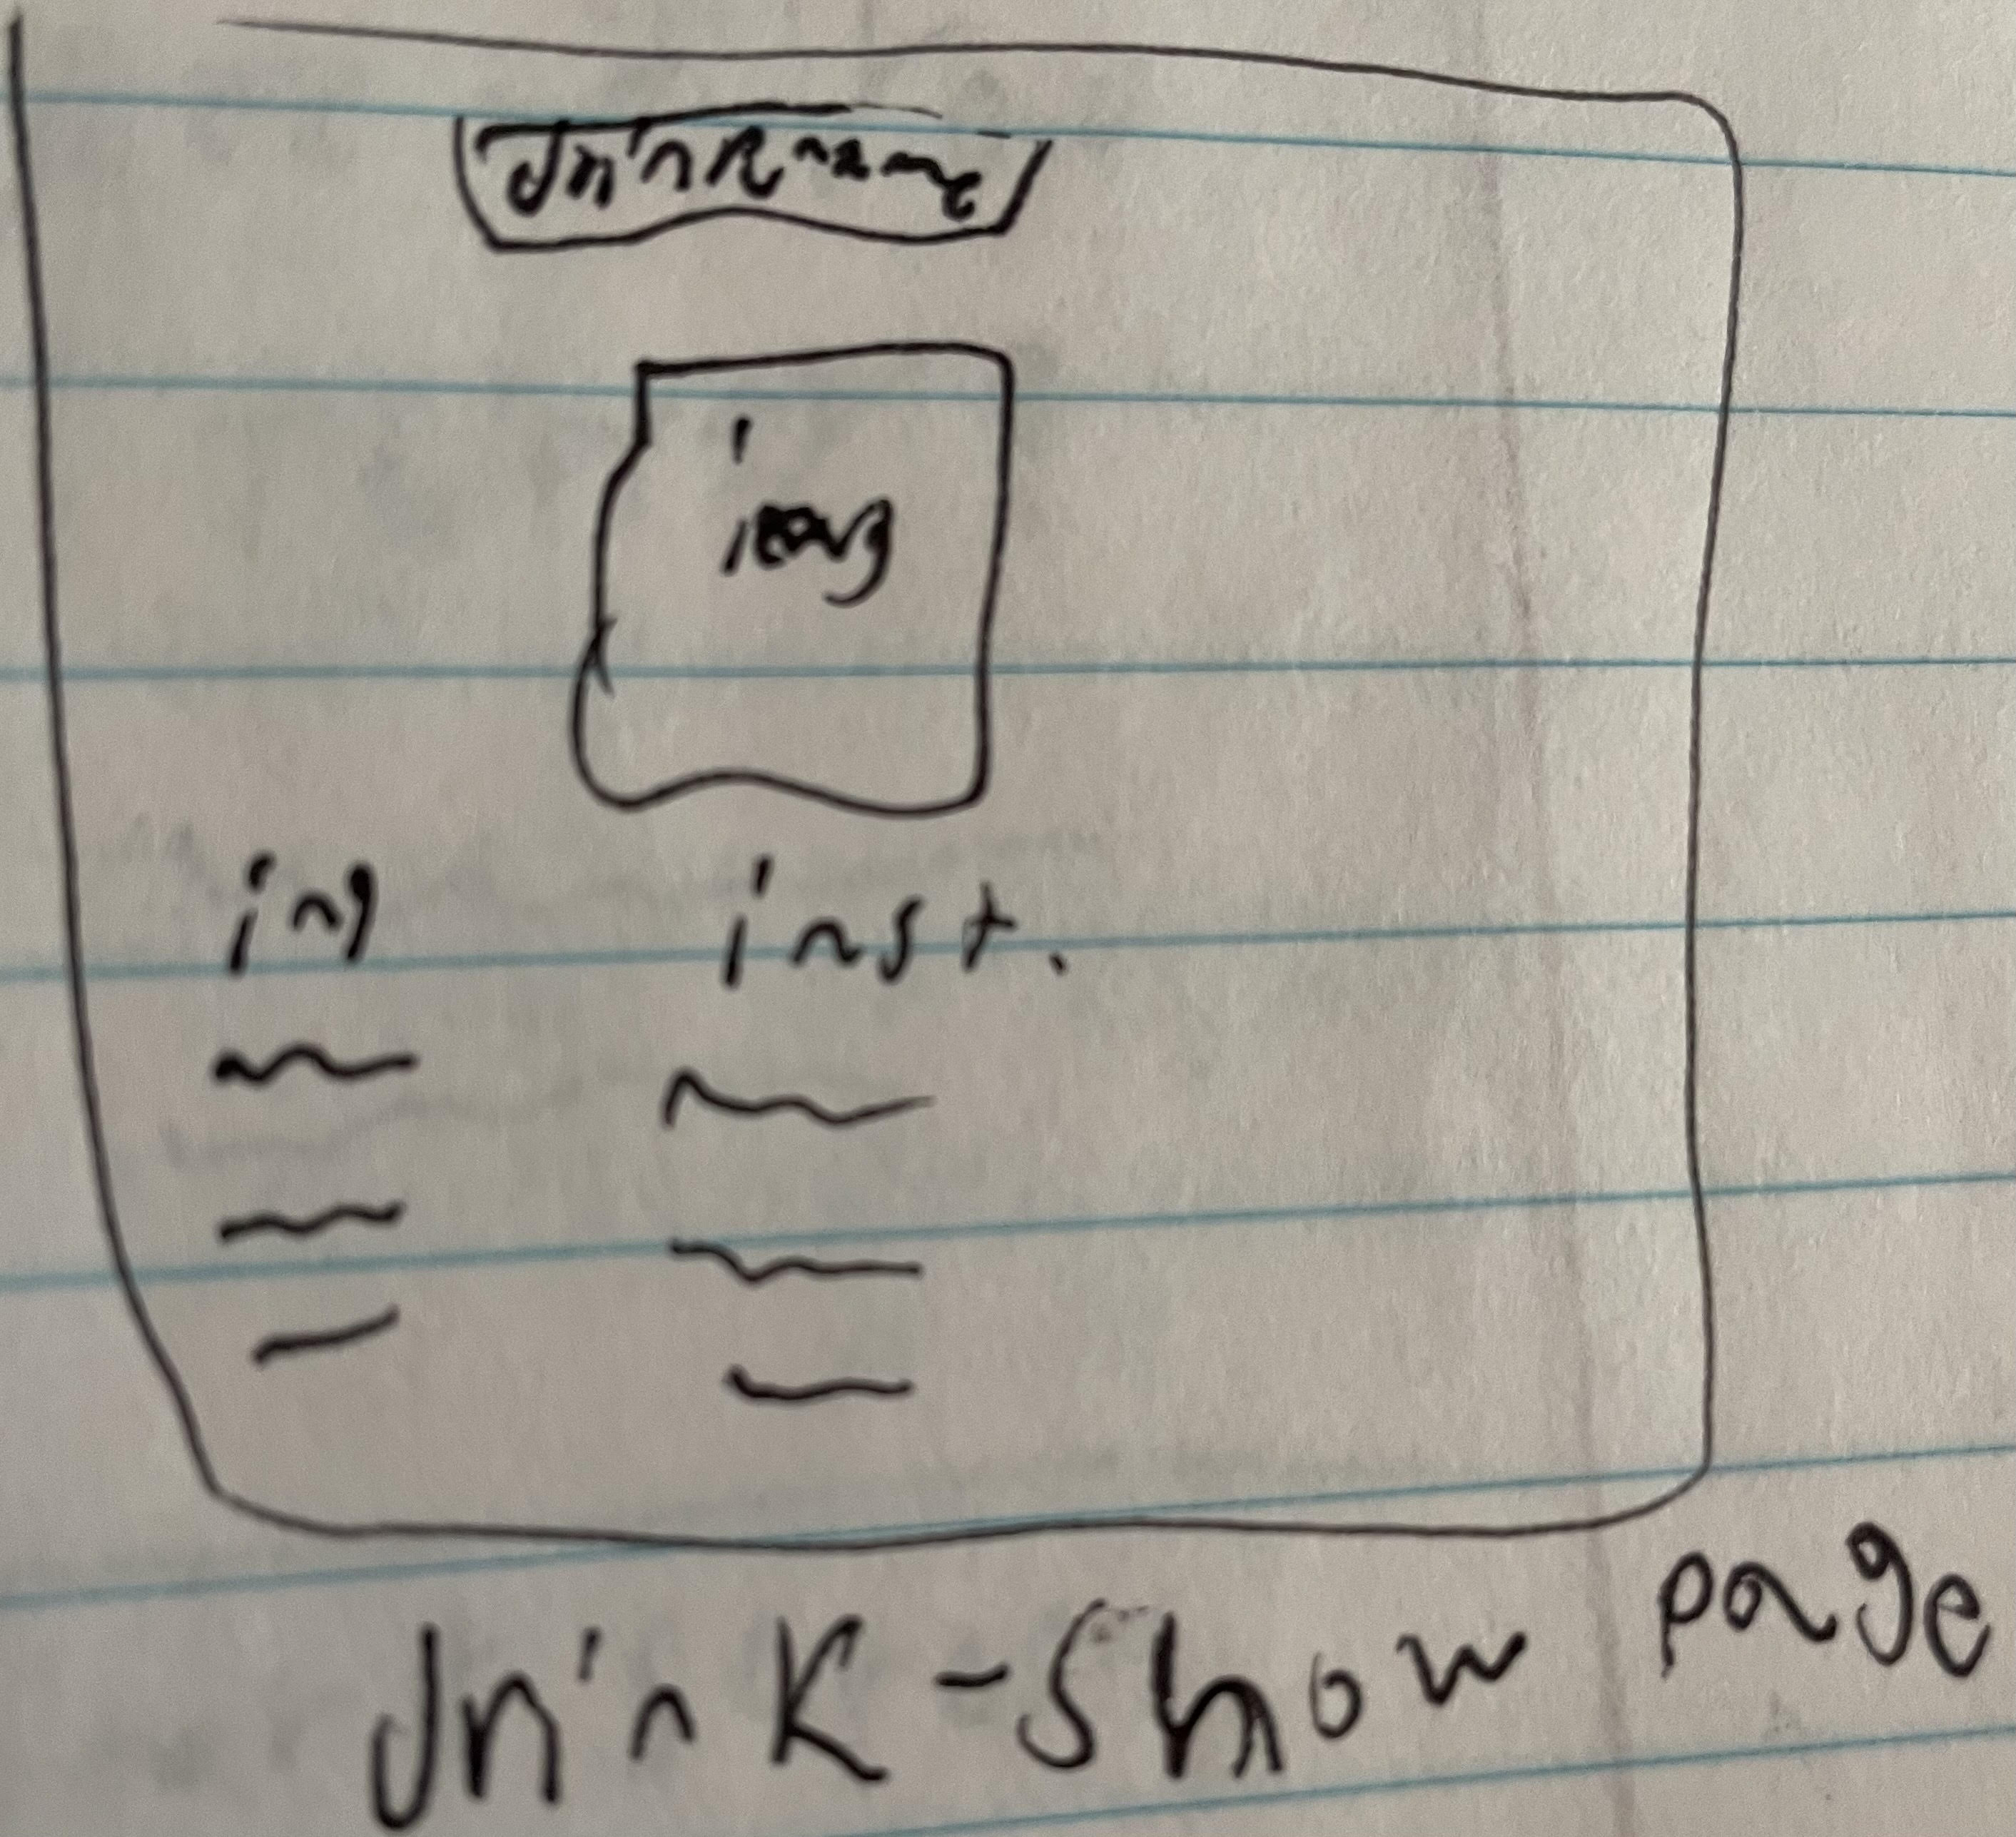 drink name
ing inst.
drink - show page